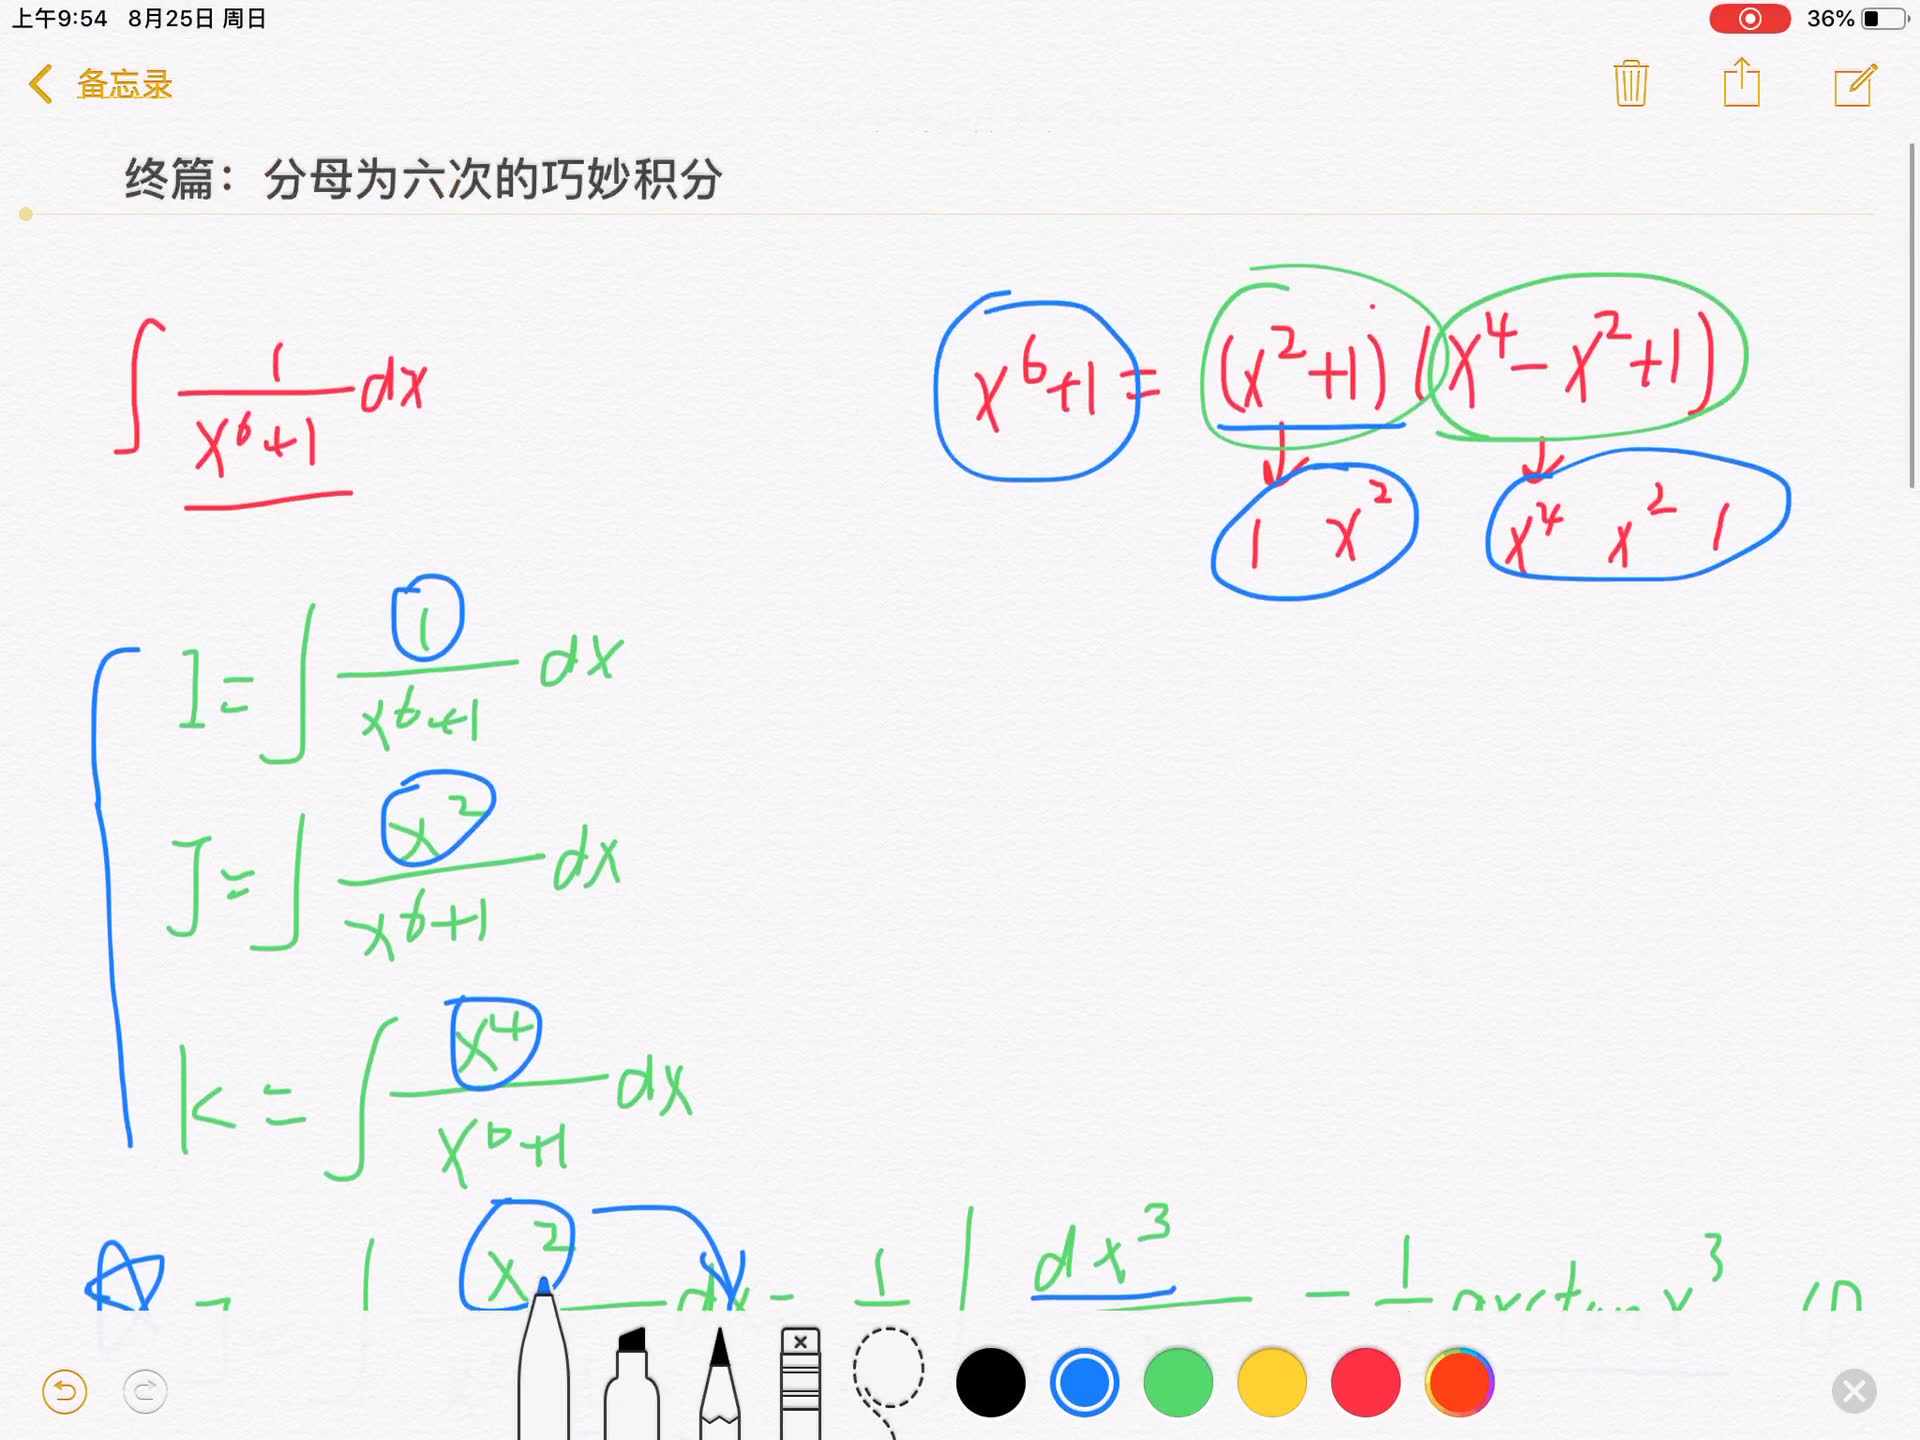 上午9:54 8月25日 周日 36%
备忘录
终篇：分母为六次的巧妙积分
∫ 1/(x⁶+1) dx
x⁶+1 = (x²+1)(x⁴-x²+1)
1 x² x⁴ x² 1
I = ∫ 1/(x⁶+1) dx
J = ∫ x²/(x⁶+1) dx
K = ∫ x⁴/(x⁶+1) dx
x² dx = 1 ∫ dx³ = 1 arctan x³